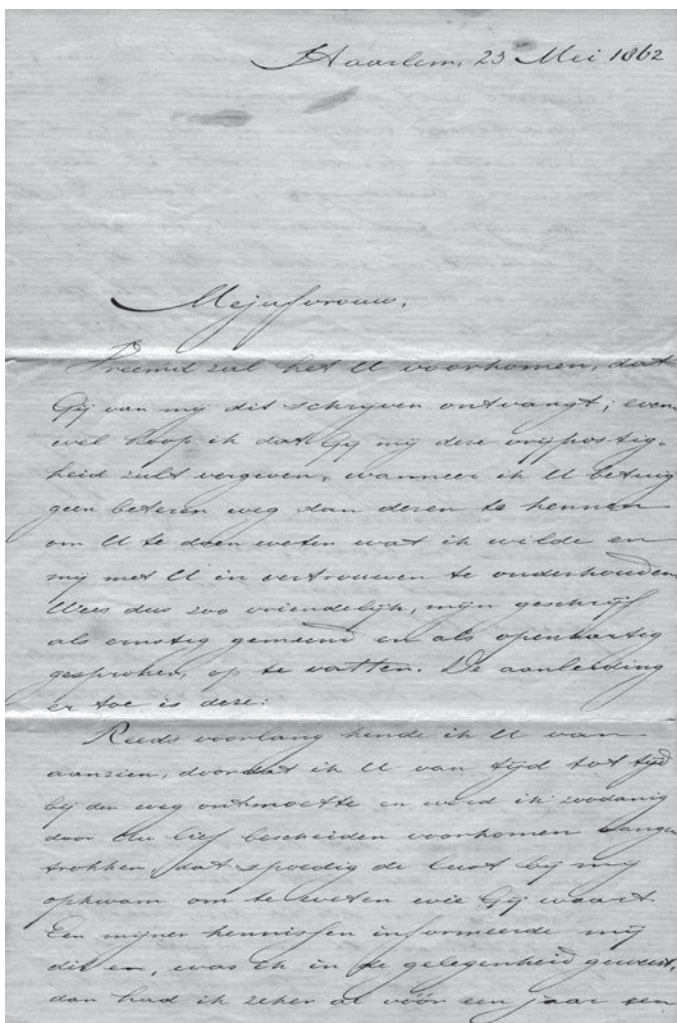 Haarlem, 23 Mei 1862
Mejufvrouw,
Vreemd zal het U voorkomen, dat
Gij van mij dit schrijven ontvangt; even
wel hoop ik dat Gij mij deze vrijpostig-
heid zult vergeven, wanneer ik U betuig
geen beteren weg dan dezen te kennen
om U te doen weten wat ik wilde en
mij met U in vertrouwen te onderhouden
Wees dus zoo vriendelijk, mijn geschrijf
als ernstig gemeend en als openhartig
gesproken, op te vatten. De aanleiding
er toe is deze:
Reeds voorlang kende ik U van
aanzien, doordat ik U van tijd tot tijd
bij den weg ontmoette en werd ik zoodanig
door Uw lief bescheiden voorkomen aange
trokken, dat spoedig de lust bij mij
opkwam om te weten wie Gij waart.
Een mijner kennissen informeerde mij
dit en, was ik in de gelegenheid geweest,
dan had ik zeker al vóór een jaar een